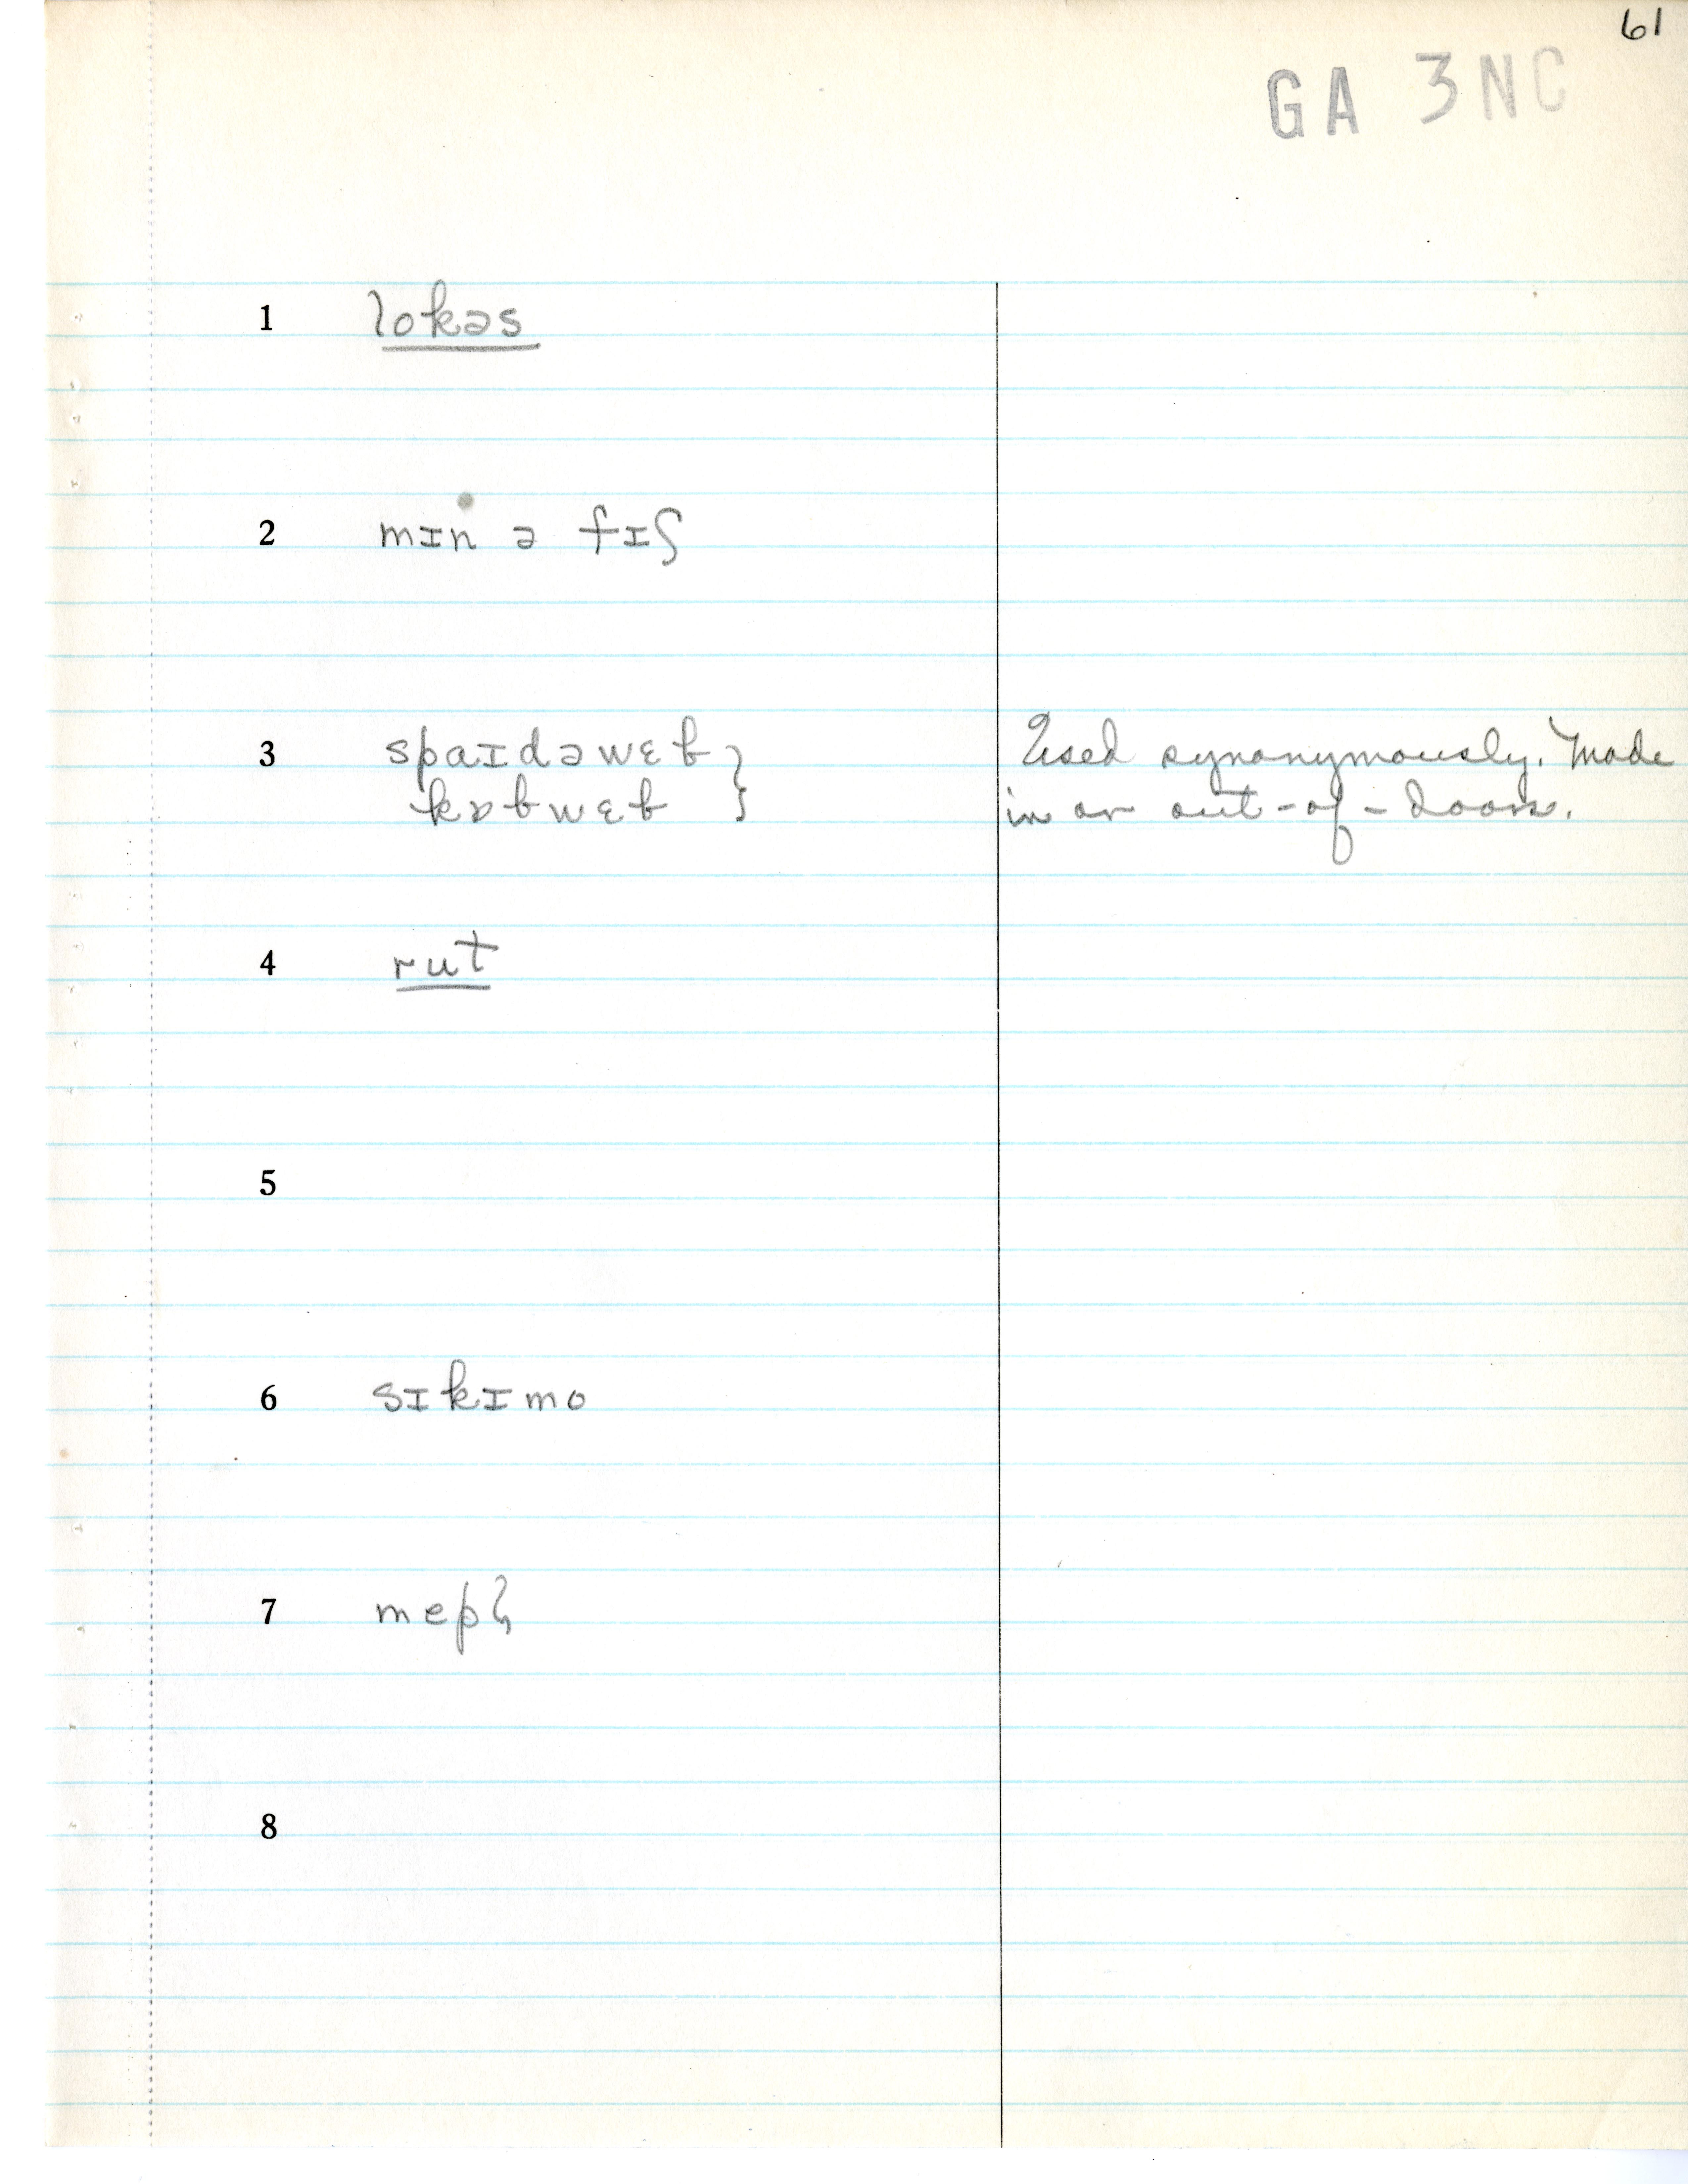 61
GA 3NC
1 lokəs
2 mɪn ə fɪʃ
3 spaɪdəwɛb } Used synonymously. Made
kɒbwɛb in or out-of-doors.
4 rut
5
6 sɪkɪmo
7 mepɫ
8